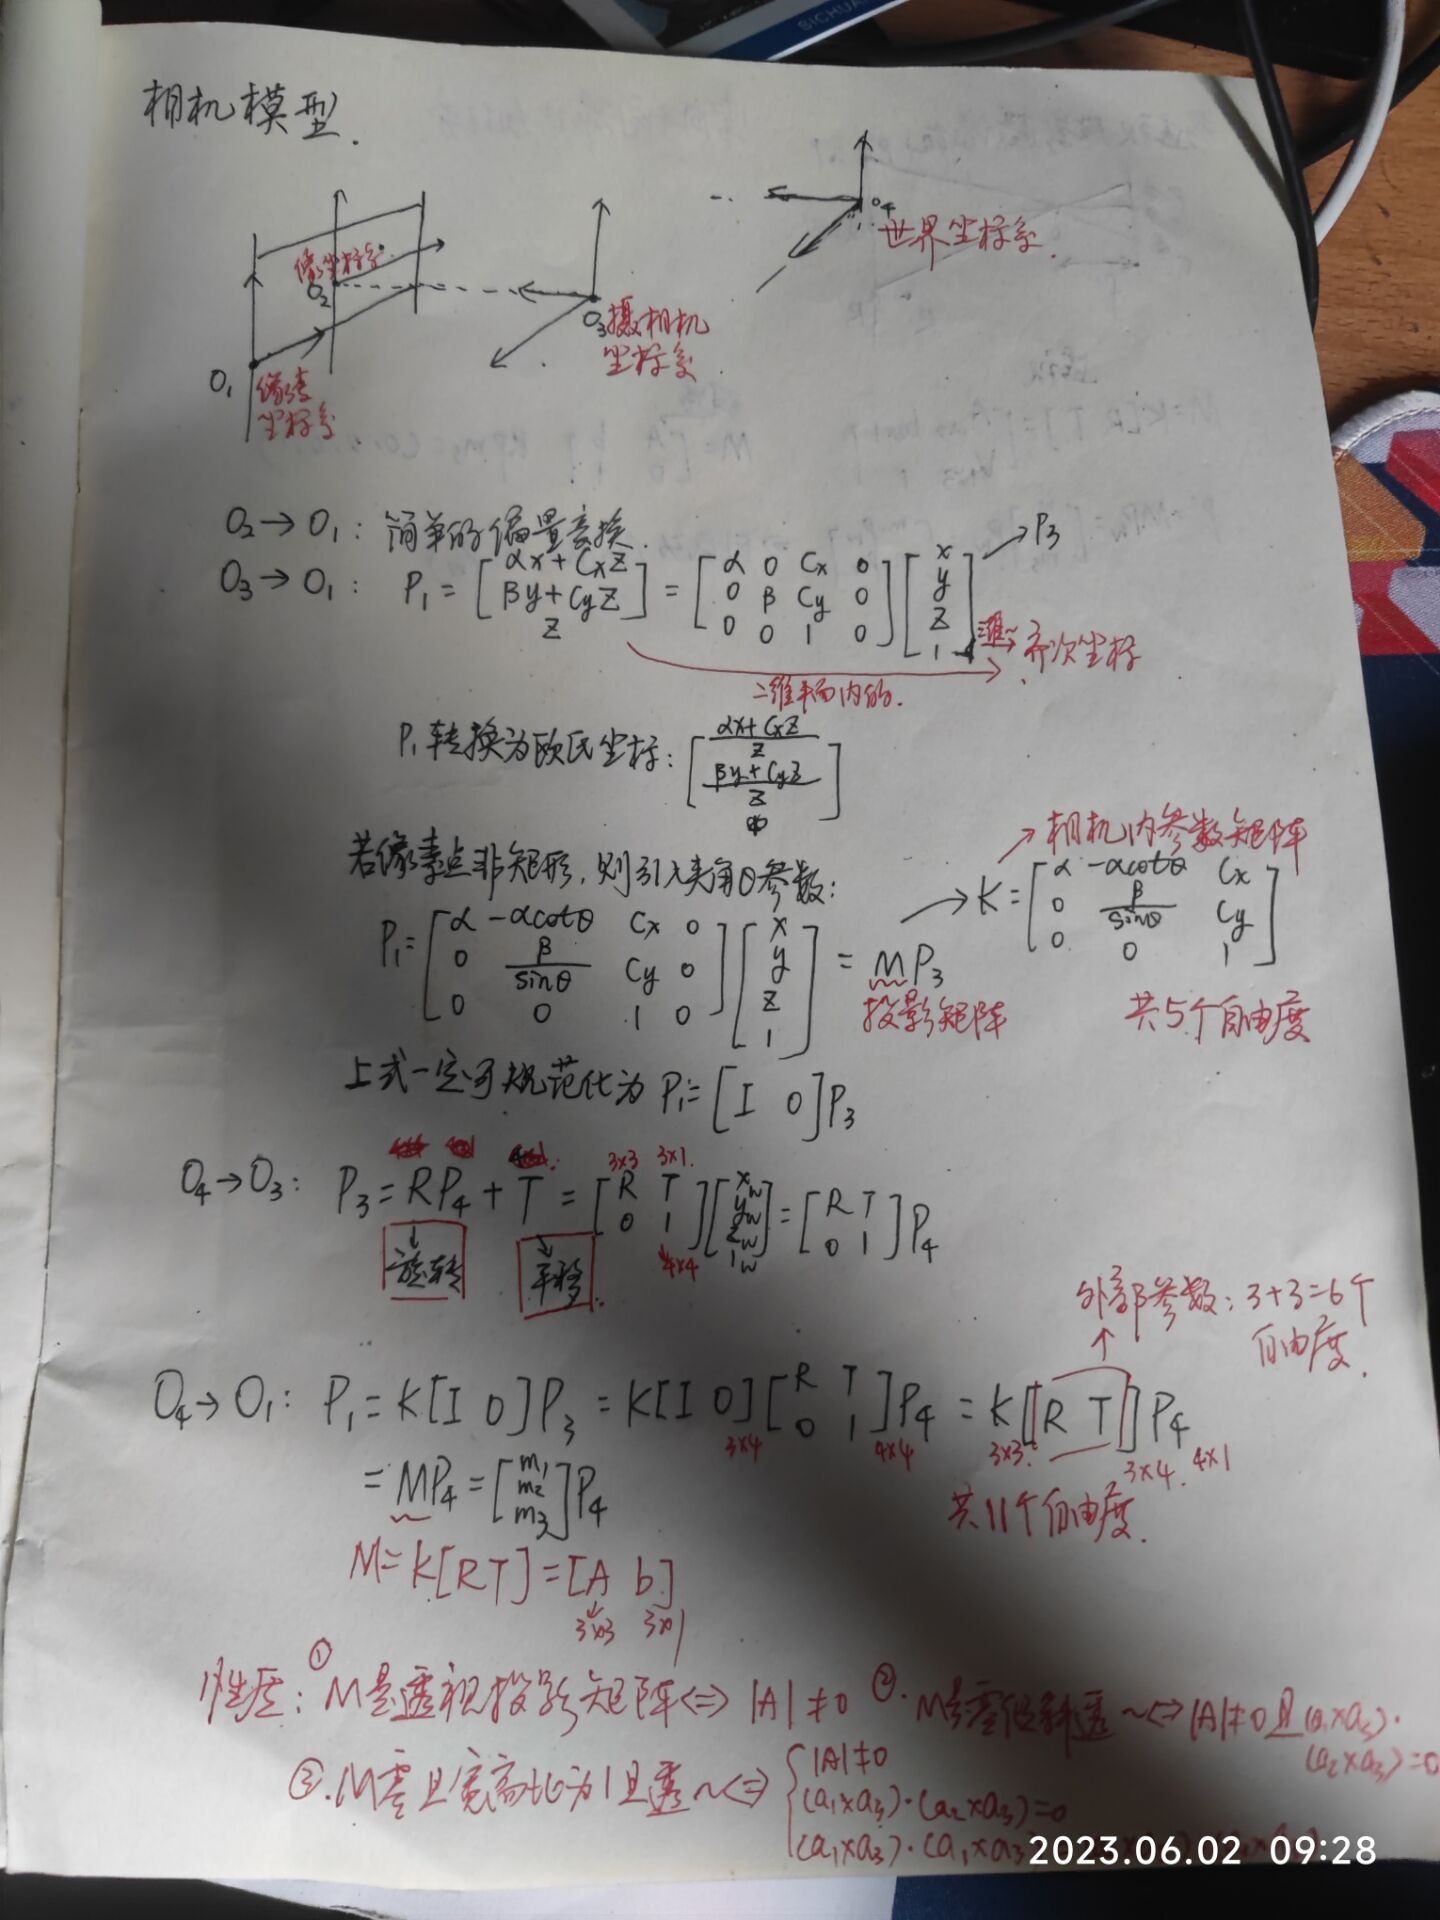 SICHUA
相机模型.
O₄
世界坐标系.
像坐标系
O₂
O₃ 摄相机
坐标系
O₁
像素
坐标系
O₂→O₁: 简单的偏置变换.
O₃→O₁: P₁ = [αx+CxZ; βy+CyZ; Z] = [α 0 Cx 0; 0 β Cy 0; 0 0 1 0][x; y; z; 1] → P₃
三维~→齐次坐标
二维平面内的.
P₁转换为欧氏坐标: [(αx+CxZ)/Z; (βy+CyZ)/Z]
若像素点非矩形, 则引入夹角θ参数:
→相机内参数矩阵
P₁=[α -αcotθ Cx 0; 0 β/sinθ Cy 0; 0 0 1 0][x; y; z; 1] = MP₃ → K=[α -αcotθ Cx; 0 β/sinθ Cy; 0 0 1]
投影矩阵 共5个自由度
上式一定可规范化为 P₁=[I 0]P₃
3×3 3×1.
O₄→O₃: P₃=RP₄+T=[R T; 0 1][xw; yw; zw; 1w]=[R T; 0 1]P₄
4×4
旋转 平移.
外部参数: 3+3=6个
自由度.
O₄→O₁: P₁=K[I 0]P₃=K[I 0][R T; 0 1]P₄=K[R T]P₄
3×4 4×4 3×3. 3×4. 4×1
=MP₄=[m₁; m₂; m₃]P₄
共11个自由度.
M=K[R T]=[A b]
3×3 3×1
性质: ① M是透视投影矩阵⇔|A|≠0 ②. M是零倾斜透~⇔|A|≠0且(a₁×a₃)·
(a₂×a₃)=0
③. M零且宽高比为1且透~⇔{|A|≠0
(a₁×a₃)·(a₂×a₃)=0
(a₁×a₃)·(a₁×a₃
2023.06.02 09:28